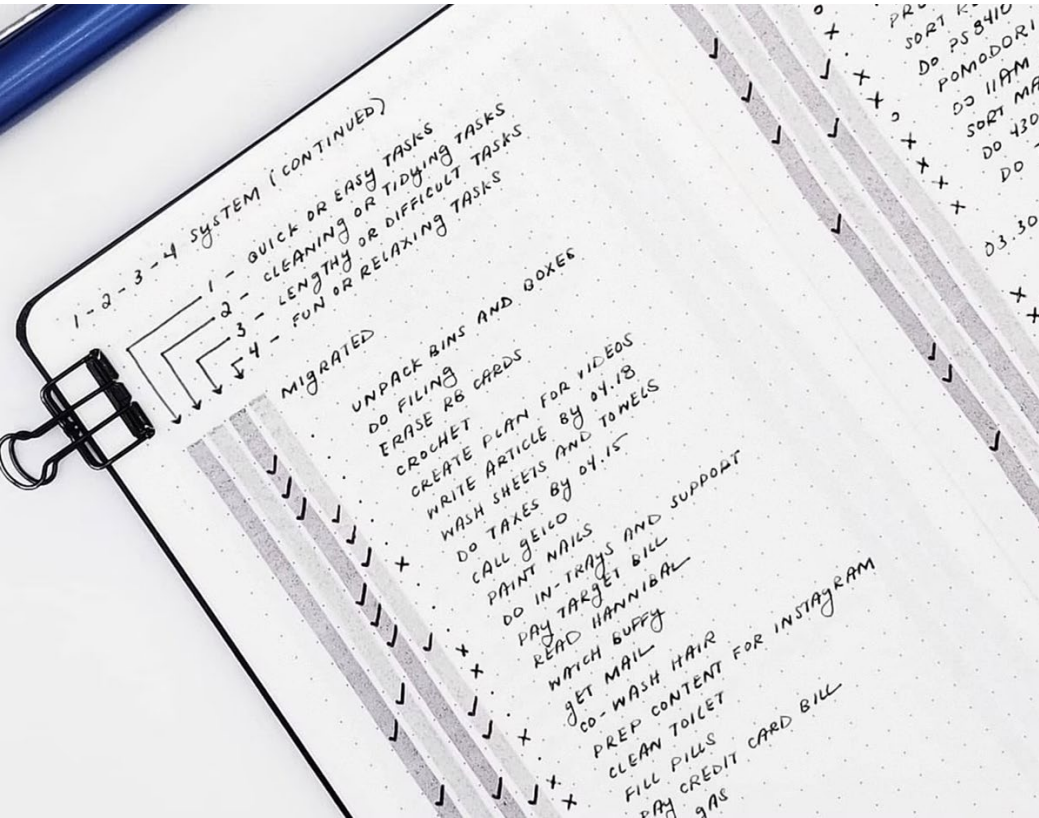 1-2-3-4 SYSTEM (CONTINUED)
1 - QUICK OR EASY TASKS
2 - CLEANING OR TIDYING TASKS
3 - LENGTHY OR DIFFICULT TASKS
4 - FUN OR RELAXING TASKS
MIGRATED
UNPACK BINS AND BOXES
DO FILING
ERASE RB CARDS
CROCHET
CREATE PLAN FOR VIDEOS
WRITE ARTICLE BY 04.18
WASH SHEETS AND TOWELS
DO TAXES BY 04.15
CALL GEICO
PAINT NAILS
DO IN-TRAYS AND SUPPORT
PAY TARGET BILL
READ HANNIBAL
WATCH BUFFY
GET MAIL
CO-WASH HAIR
PREP CONTENT FOR INSTAGRAM
CLEAN TOILET
FILL PILLS
PAY CREDIT CARD BILL
GAS
SORT
DO PS8410
POMODORI
DO 11AM
SORT MA
DO 430
DO
03.30